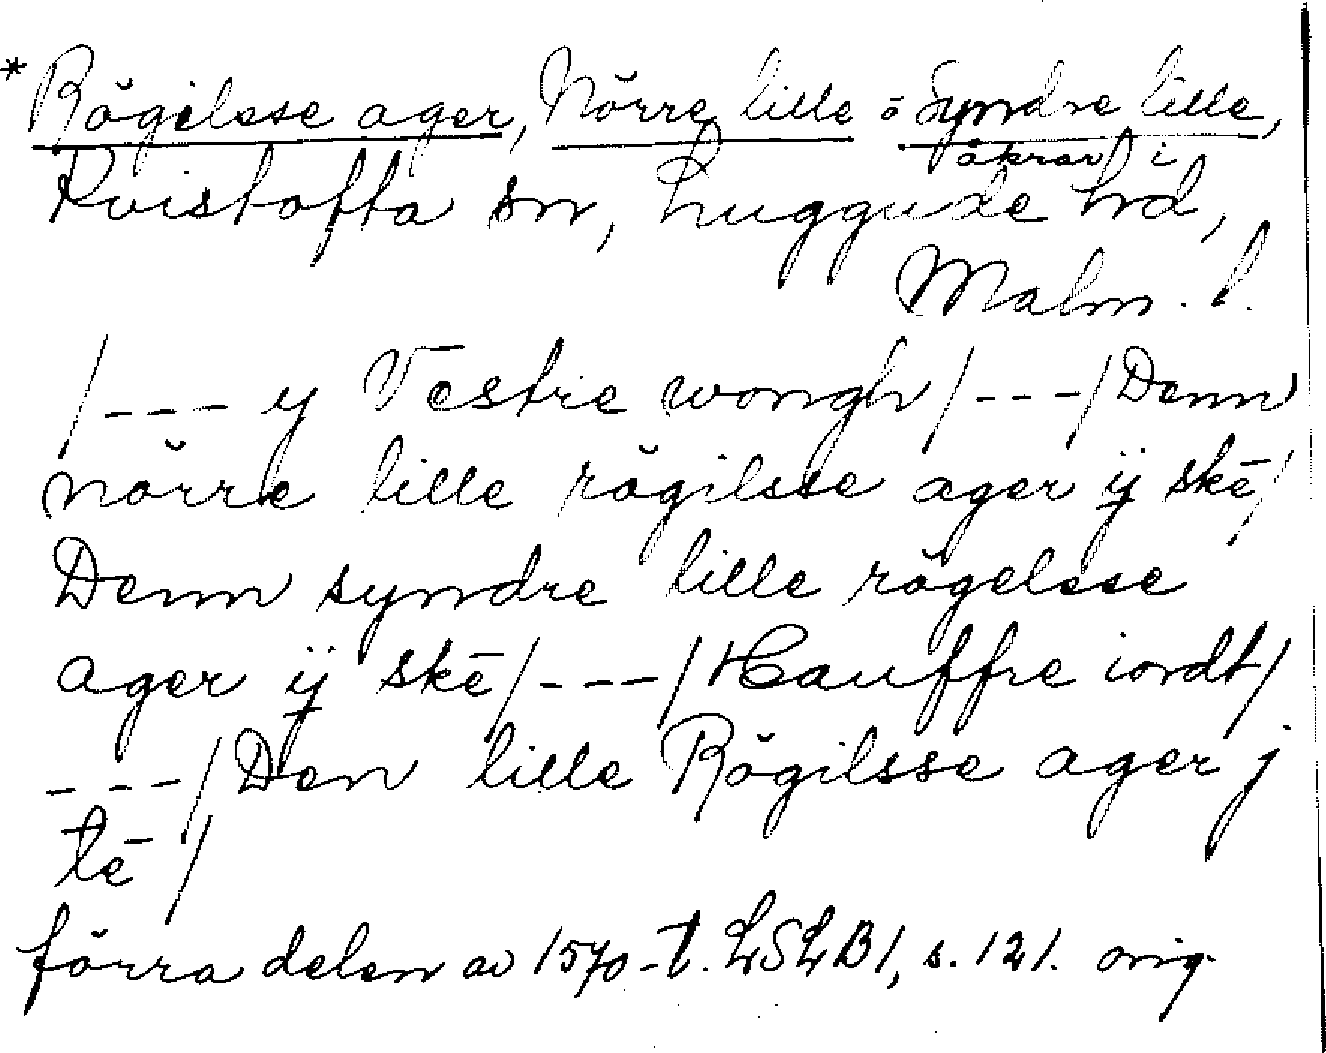 * Rögilsse ager, Nörre lille o Syndre lille,
åkrar i
Kvistofta sn, Luggude hd,
Malm. l.
/--- y Vestre wongh/---/Denn
nörre lille rögilsse ager ÿ skē/
Denn syndre lille rögelsse
ager ÿ skē/---/Hauffre iordt/
---/Den lille Rögilsse ager j
tē/
förra delen av 1570-t. LSLB1, s. 121. orig.